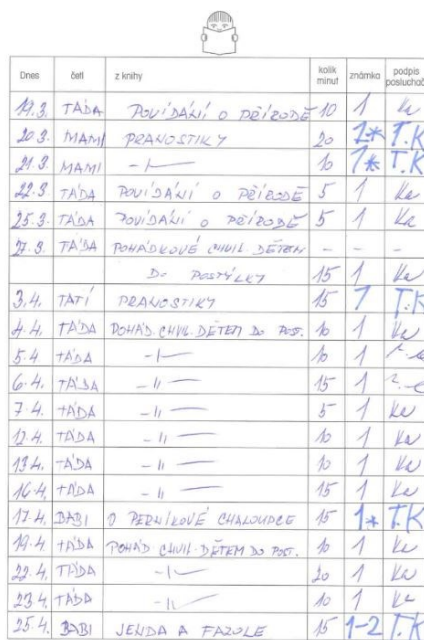 Dnes četl z knihy kolik minut známka podpis posluchače
19.3. TÁDA POVÍDÁNÍ O PŘÍRODĚ 10 1 Ka
20.3. MAMI PRANOSTIKY 20 1* T.K
21.3. MAMI -〃- 10 1* T.K
22.3. TÁDA POVÍDÁNÍ O PŘÍRODĚ 5 1 Ka
25.3. TÁDA POVÍDÁNÍ O PŘÍRODĚ 5 1 Ka
27.3. TÁDA POHÁDKOVÉ CHVIL. DĚTEM - - -
DO POSTÝLKY 15 1 Ka
3.4. TATÍ PRANOSTIKY 15 1 T.K
4.4. TÁDA POHÁD. CHVIL. DĚTEM DO POST. 10 1 Ka
5.4 TÁDA -〃- 10 1
6.4. TÁDA -〃- 15 1
7.4. TÁDA -〃- 5 1 Ka
12.4. TÁDA -〃- 10 1 Ka
13.4. TÁDA -〃- 10 1 Ka
16.4. TÁDA -〃- 15 1 Ka
17.4. BABI O PERNÍKOVÉ CHALOUPCE 15 1* T.K
19.4 TÁDA POHÁD. CHVIL. DĚTEM DO POST. 10 1 Ka
22.4. TÁDA -〃- 20 1 Ka
23.4 TÁDA -〃- 10 1 Ka
25.4. BABI JENDA A FAZOLE 15 1-2 T.K